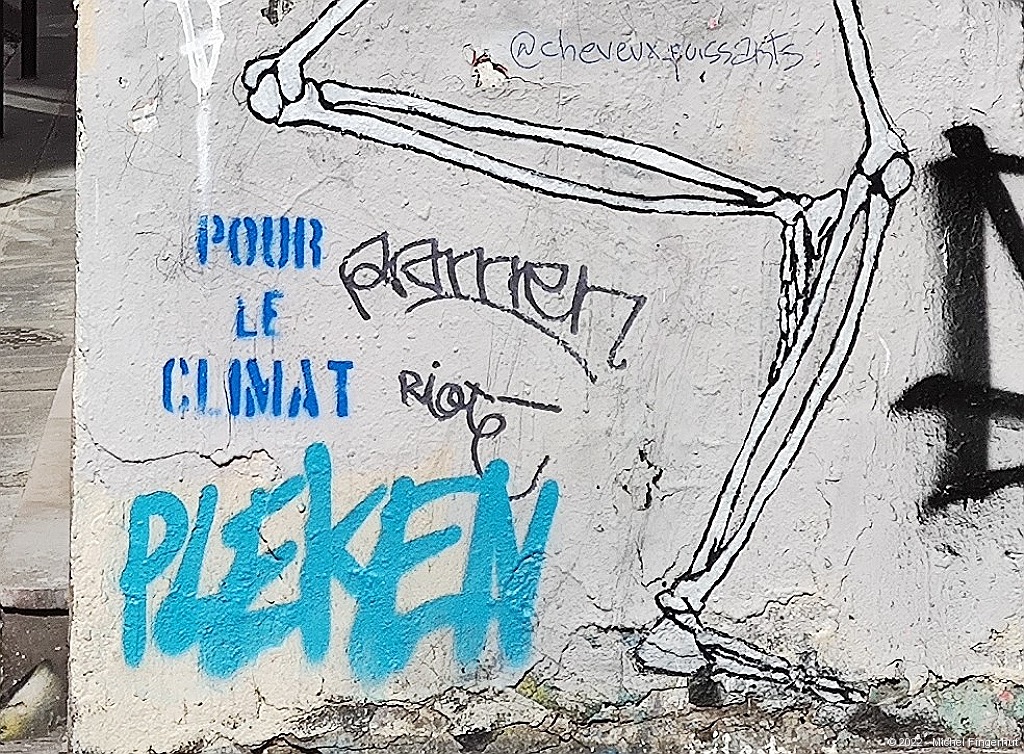 @cheveux.puissants
POUR
LE
CLIMAT
RiOT
PLEKEN
© 2022 - Michel Fingerhut